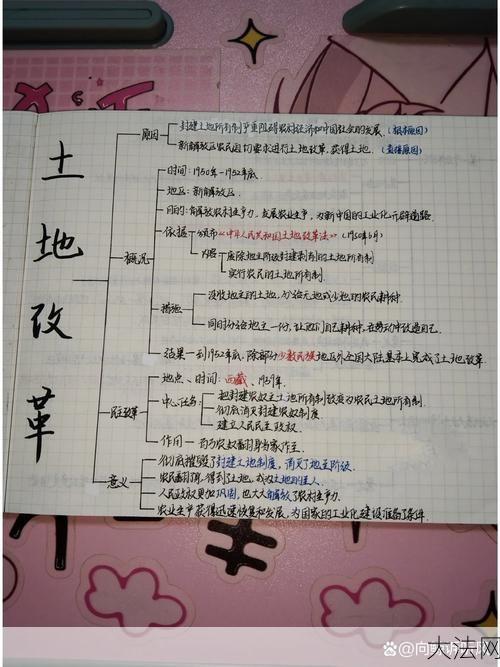 土地改革
原因
封建土地所有制严重阻碍农村经济和中国社会的发展.(根本原因)
新解放区农民迫切要求进行土地改革、获得土地.(直接原因)
概况
时间:1950年-1952年底.
地区:新解放区.
目的:解放农村生产力,发展农业生产,为新中国的工业化开辟道路.
依据-颁布《中华人民共和国土地改革法》(1950年6月)
内容
废除地主阶级封建剥削的土地所有制
实行农民的土地所有制.
措施
没收地主的土地,分给无地或少地的农民耕种.
同时分给地主一份,让他们自己耕种,在劳动中改造自己.
结果-到1952年底,除部分少数民族地区外,全国大陆基本上完成了土地改革.
民主改革
地点、时间:西藏、1959年.
中心任务:
把封建农奴主土地所有制改变为农民土地所有制.
彻底消灭封建农奴制度
建立人民民主政权
作用-百万农奴翻身当家作主.
意义
彻底摧毁了封建土地制度,消灭了地主阶级.
农民翻了身,得到了土地,成为土地的主人.
人民政权更加巩固,也大大解放了农村生产力.
农业生产获得迅速恢复和发展,为国家的工业化建设准备了条件.
大法网